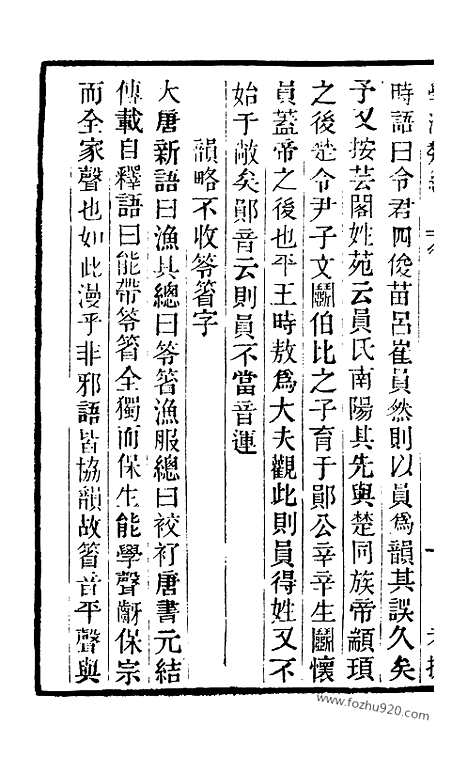 時語曰令君四俊苗呂崔員然則以員爲韻其誤久矣
予又按芸閣姓苑云員氏南陽其先與楚同族帝顓頊
之後楚令尹子文鬭伯比之子育于鄖公辛辛生鬭懷
員蓋帝之後也平王時敖爲大夫觀此則員得姓又不
始于敵矣鄖音云則員不當音運
韻略不收笭箵字
大唐新語曰漁具總曰笭箵漁服總曰袯衧唐書元結
傳載自釋語曰能帶笭箵全獨而保生能學聲齖保宗
而全家聲也如此漫乎非邪語皆協韻故箵音平聲與
www.fozhu920.com